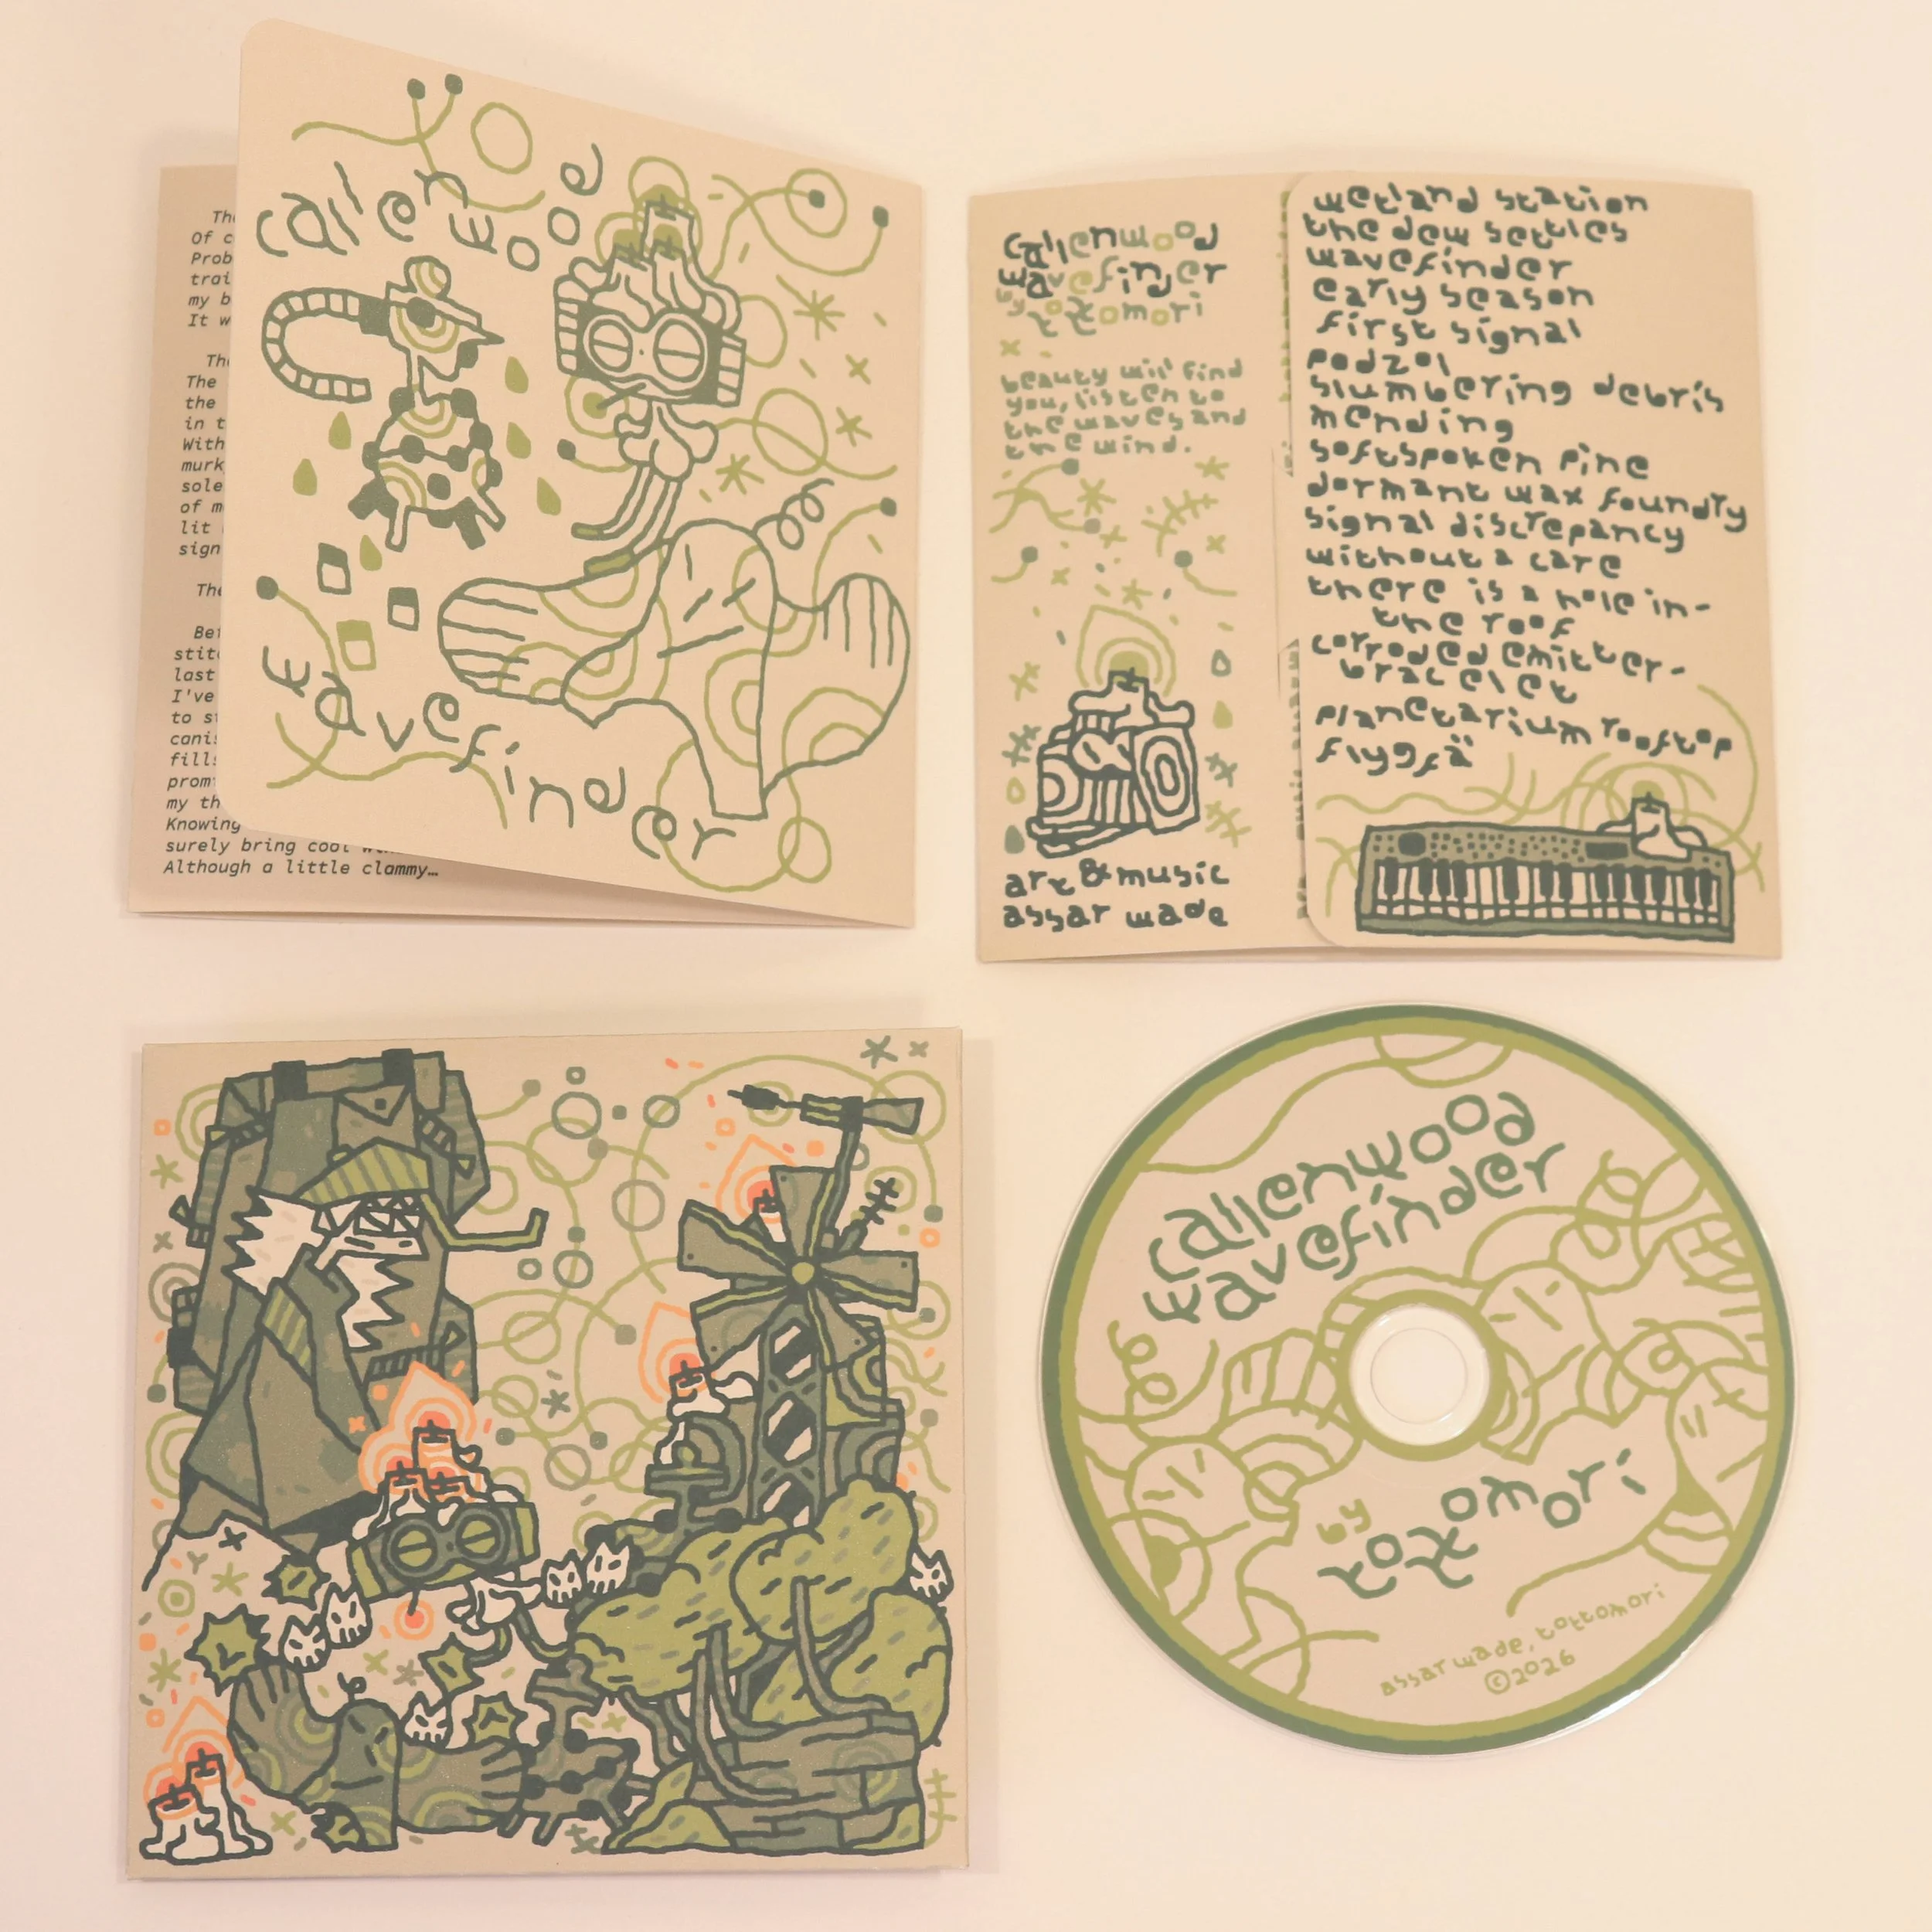 Th
Of c
Prob
trai
my b
It w
Th
The
the
in t
With
murk
sole
of m
lit
sign
The
Bef
stit
last
I've
to st
canis
fills
prom
my th
Knowing
surely bring cool
Although a little clammy…
callenwood
wavefinder
callenwood
wavefinder
by tottomori
beauty will find
you, listen to
the waves and
the wind.
art & music
assar wade
wetland station
the dew settles
wavefinder
early season
first signal
podzol
slumbering debris
mending
softspoken pine
dormant wax foundry
signal discrepancy
without a care
there is a hole in-
the roof
corroded emitter-
bracelet
planetarium rooftop
flygfä
callenwood
wavefinder
by tottomori
assar wade, tottomori
©2026